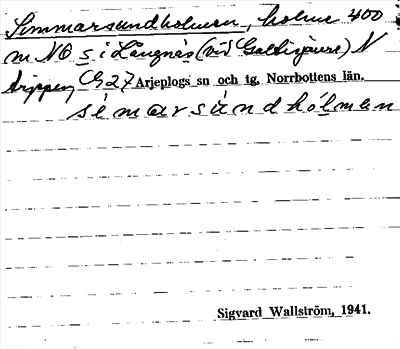 Simmarsundholmen, holme 400
m NO s i Långnäs (vid Galtispuoda) N
trippen Ch 27 Arjeplogs sn och tg, Norrbottens län.
simarsundhólmen
Sigvard Wallström, 1941.